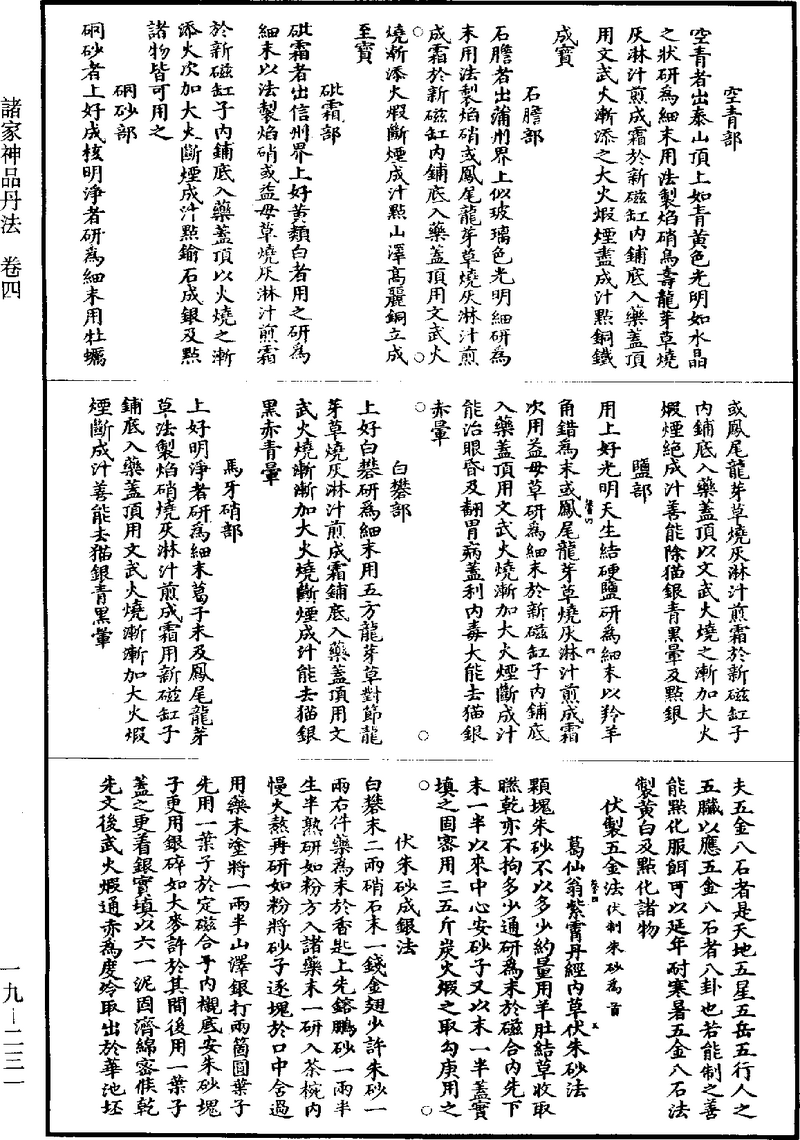 諸家神品丹法　卷四
一九—二三一
空青部
空青者出泰山頂上如青黃色光明如水晶
之狀研為細末用法製焰硝烏壽龍芽草燒
灰淋汁煎成霜於新磁缸內鋪底入藥蓋頂
用文武火漸添之大火煅煙盡成汁點銅鐵
成寶
石膽部
石膽者出蒲州界上似玻璃色光明細研為
末用法製焰硝或鳳尾龍芽草燒灰淋汁煎
成霜於新磁缸內鋪底入藥蓋頂用文武火
燒漸添火煅斷煙成汁點山澤高麗銅立成
至寶
砒霜部
砒霜者出信州界上好黃顙白者用之研為
細末以法製焰硝或益母草燒灰淋汁煎霜
於新磁缸子內鋪底入藥蓋頂以火燒之漸
添火次加大火斷煙成汁點鍮石成銀及點
諸物皆可用之
硇砂部
硇砂者上好成核明淨者研為細末用牡蠣
或鳳尾龍芽草燒灰淋汁煎霜於新磁缸子
內鋪底入藥蓋頂以文武火燒之漸加大火
煅煙絕成汁善能除猫銀青黑暈及點銀
鹽部
用上好光明天生結硬鹽研為細末以羚羊
角錯為末或鳳尾龍芽草燒灰淋汁煎成霜
次用益母草研為細末於新磁缸子內鋪底
入藥蓋頂用文武火燒漸加大火煙斷成汁
能治眼昏及翻胃病蓋利內毒大能去猫銀
赤暈
白礬部
上好白礬研為細末用五方龍芽草對節龍
芽草燒灰淋汁煎成霜鋪底入藥蓋頂用文
武火燒漸漸加大火燒斷煙成汁能去猫銀
黑赤青暈
馬牙硝部
上好明淨者研為細末葛子末及鳳尾龍芽
草法製焰硝燒灰淋汁煎成霜用新磁缸子
鋪底入藥蓋頂用文武火燒漸漸加大火煅
煙斷成汁善能去猫銀青黑暈
夫五金八石者是天地五星五岳五行人之
五臟以應五金八石者八卦也若能制之善
能點化服餌可以延年耐寒暑五金八石法
製黃白及點化諸物
伏製五金法伏制朱砂為首
葛仙翁紫霄丹經內草伏朱砂法
顆塊朱砂不以多少約量用羊肚結草收取
瞧乾亦不拘多少通研為末於磁合內先下
末一半以來中心安砂子又以末一半蓋實
填之固密用三五斤炭火煅之取勾庚用之
伏朱砂成銀法
白礬末二兩硝石末一錢金翅少許朱砂一
兩右件藥為末於香匙上先鎔鵬砂一兩半
生半熟研如粉方入諸藥末一研入茶椀內
慢火熬再研如粉將砂子逐塊於口中含過
用藥末塗將一兩半山澤銀打兩箇圓葉子
先用一葉子於定磁合子內襯底安朱砂塊
子更用銀碎如大麥許於其間後用一葉子
蓋之更着銀實填以六一泥固濟綿密候乾
先文後武火煅通赤為度冷取出於華池坯